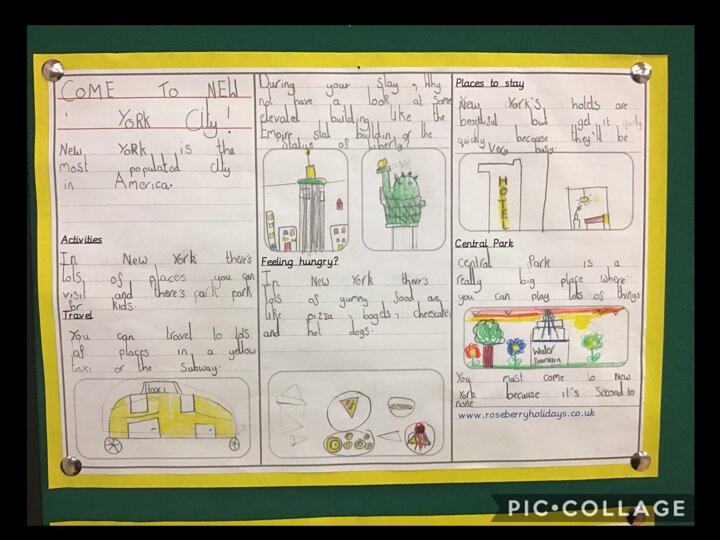 COME TO NEW
YORK City!
New York is the
most populated city
in America.
Activities
In New York there's
lots of places you can
visit and there's park park
for kids.
Travel
You can travel to lots
of places in a yellow
taxi or the Subway.
taxi
During your stay, Why
not have a look at some
elevated building like the
Empire stat buildin or the
Statue of Liberty?
Feeling hungry?
In New York there's
lots of yumy food as
like pizza, bagels, cheecake,
and hot dogs.
Places to stay
New York's holds are
beatiful but get it quidy
quickly because they'll be
very busy.
HOTEL
Central Park
central Park is a
really big place where
you can play lots of things
Water
fountain
You must come to New
York because it's Second to
none
www.roseberryholidays.co.uk
PIC•COLLAGE